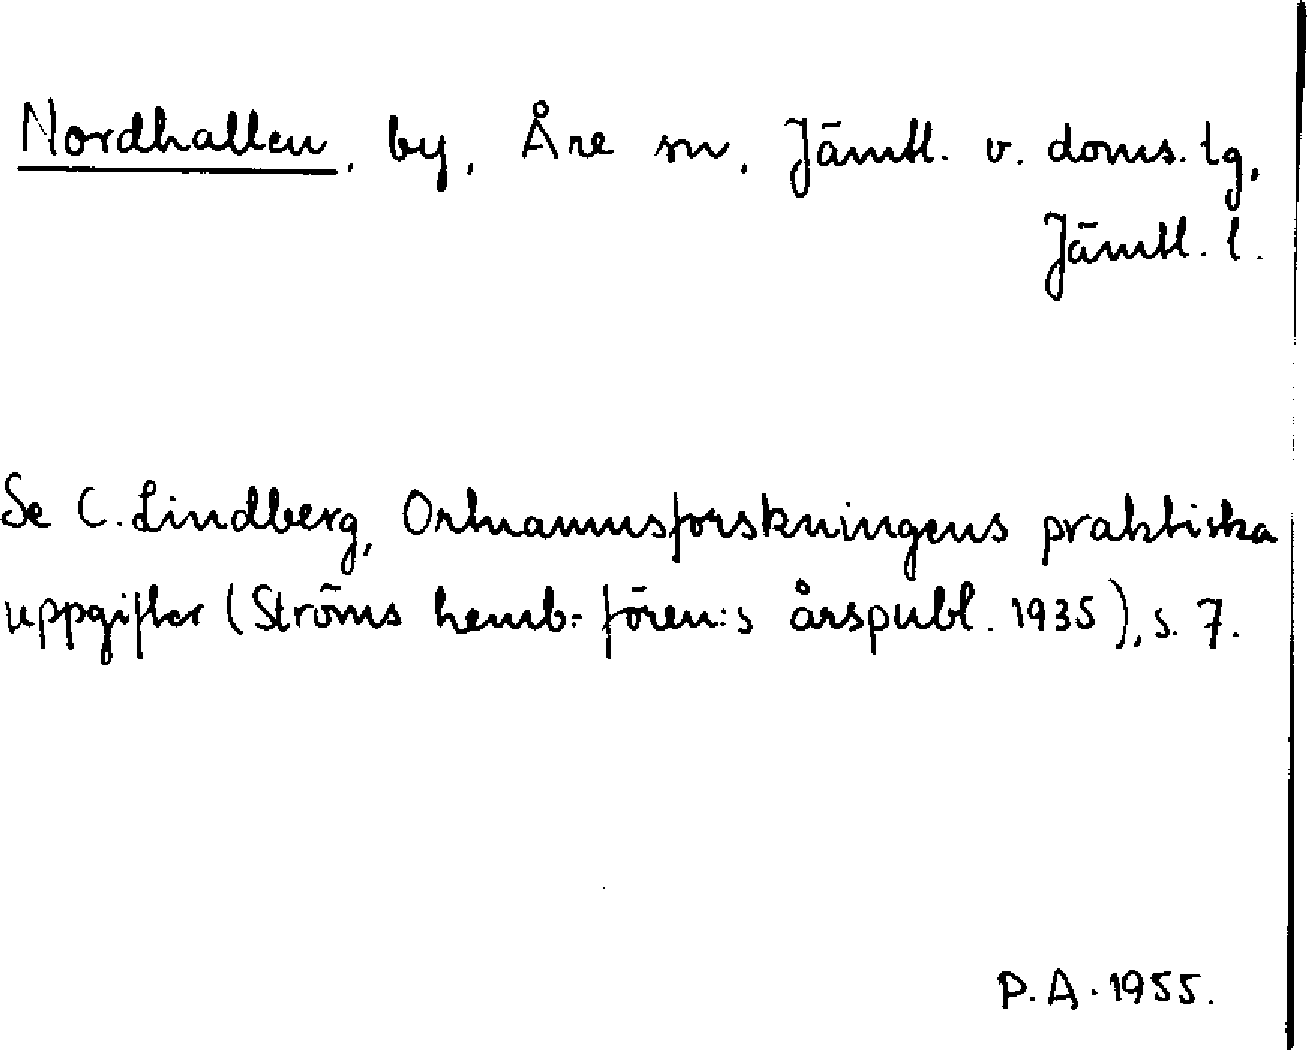 Nordhallen, by, Åre sn, Jämtl. v. doms. lg,
Jämtl. l.
Se C. Lindberg, Ortnamnsforskningens praktiska
uppgifter (Ströms hemb.-fören:s årspubl. 1935), s. 7.
P.A. 1955.